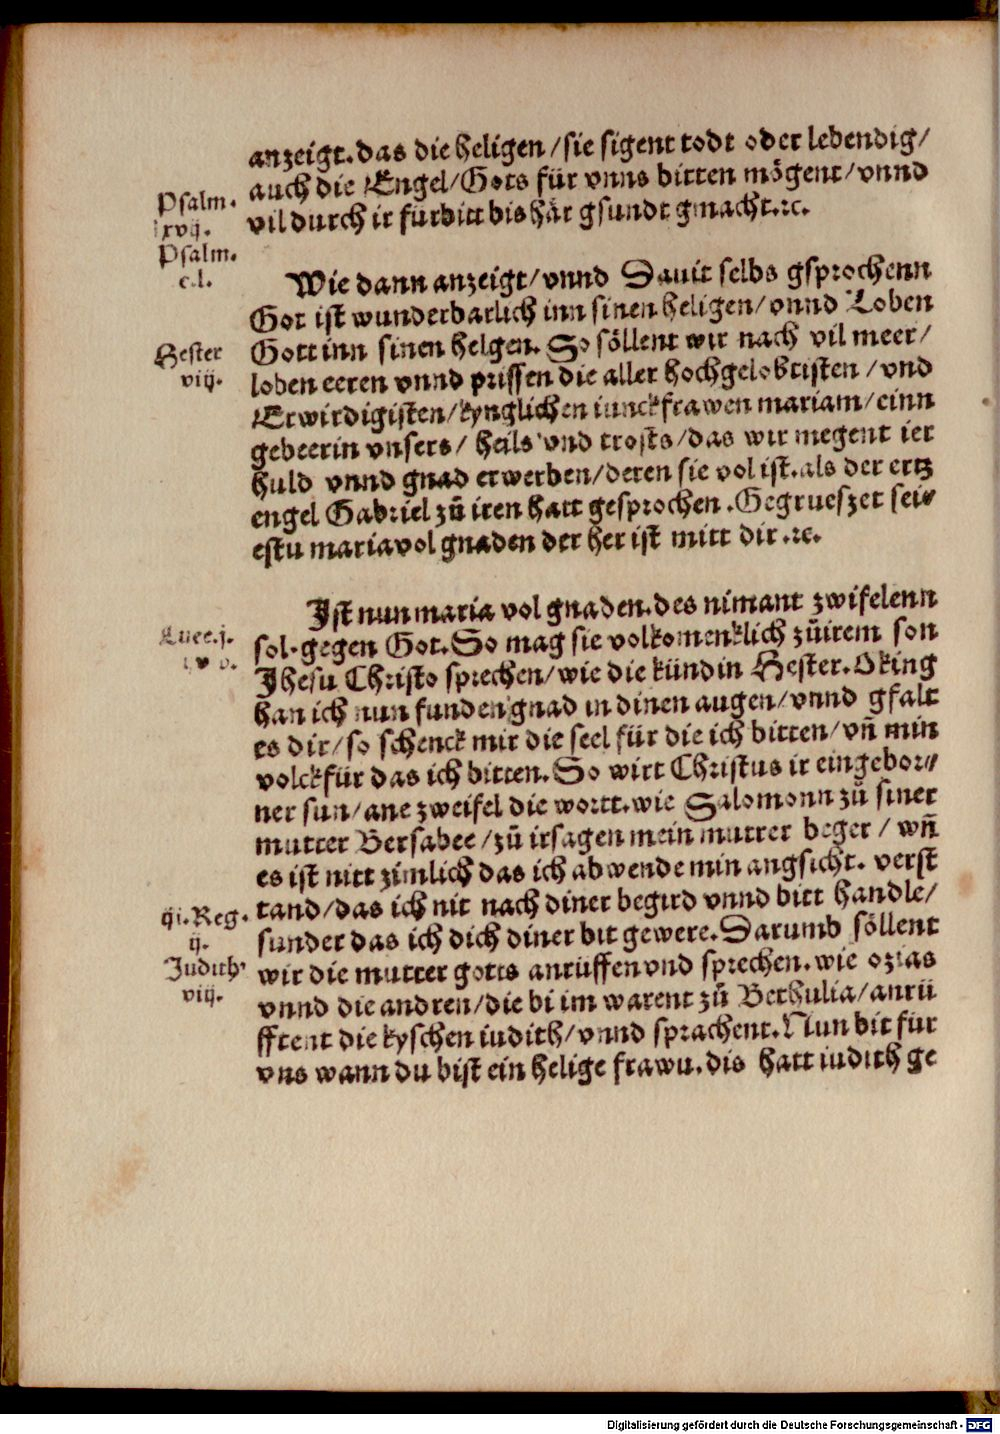 anzeigt. das die heligen / sie sigent todt oder lebendig /
auch die Engel / Gots für vnns bitten mögent / vnnd
vil durch ir fürbitt bis här gsundt gmacht. ꝛc.
Psalm.
lxvij.
Psalm.
c.l.
Wie dann anzeigt / vnnd Dauit selbs gsprochenn
Got ist wunderbarlich inn sinen heligen / vnnd Loben
Gott inn sinen helgen. So söllent wir nach vil meer /
Hester
viij.
loben eeren vnnd prissen die aller hochgelobtisten / vnd
Erwirdigisten / kynglichen iunckfrawen mariam / einn
gebeerin vnsers / heils vnd trosts / das wir megent ier
huld vnnd gnad erwerben / deren sie vol ist. als der ertz
engel Gabriel zů iren hatt gesprochen. Gegrueszet sei⸗
estu maria vol gnaden der her ist mitt dir. ꝛc.
Ist nun maria vol gnaden. des nimant zwifelenn
Luce. j.
sol. gegen Got. So mag sie volkomenklich zů irem son
Jhesu Christo sprechen / wie die kündin Hester. O king
han ich nun funden gnad in dinen augen / vnnd gfalt
es dir / so schenck mir die seel für die ich bitten / vñ min
volck für das ich bitten. So wirt Christus ir eingebor⸗
ner sun / ane zweifel die wortt. wie Salomonn zů siner
mutter Bersabee / zů ir sagen mein mutter beger / wñ
es ist nitt zimlich das ich abwende min angsicht. verst
iij. Reg.
ij.
tand / das ich nit nach diner begird vnnd bitt handle /
sunder das ich dich diner bit gewere. Darumb söllent
Judith
viij.
wir die mutter gotts anrüffen vnd sprechen. wie ozias
vnnd die andren / die bi im warent zů Bethulia / anrü
fftent die kyschen iudith / vnnd sprachent. Nun bit für
vns wann du bist ein helige frawu. dis hatt iudith ge
Digitalisierung gefördert durch die Deutsche Forschungsgemeinschaft - DFG